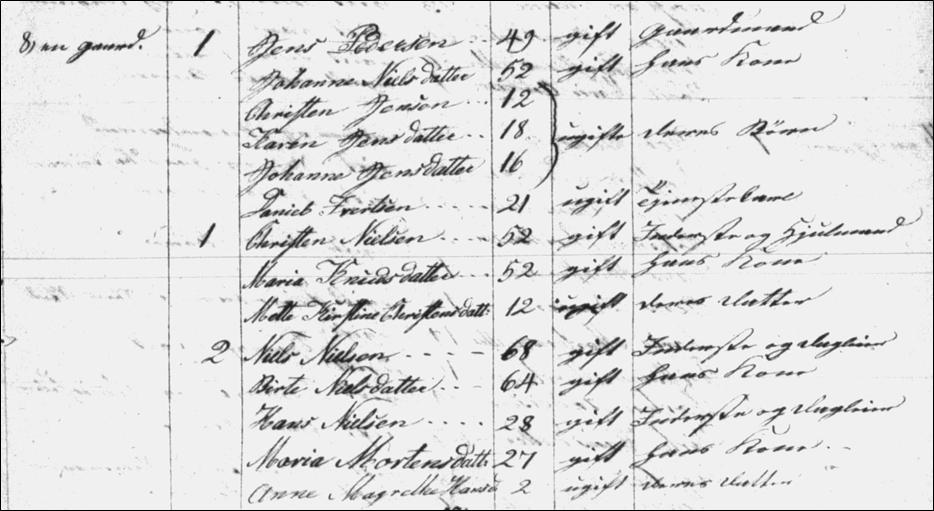 8, en gaard. 1 Jens Pedersen 49 gift Gaardmand
Johanne Nielsdatter 52 gift hans Kone
Christen Jensen 12
Karen Jensdatter 18 ugifte deres Børn
Johanne Jensdatter 16
Daniel Ivertsen 21 ugift Tjenestekarl
1 Christen Nielsen 52 gift Inderste og Hjulmand
Maria Knudsdatter 52 gift hans Kone
Mette Kirstine Christensdatt: 12 ugift deres Datter
2 Niels Nielsen 68 gift Inderste og Dagleier
Birte Nielsdatter 64 gift hans Kone
Hans Nielsen 28 gift Inderste og Dagleier
Maria Mortensdatt: 27 gift hans Kone
Anne Magrethe Hansd 2 ugift deres Datter